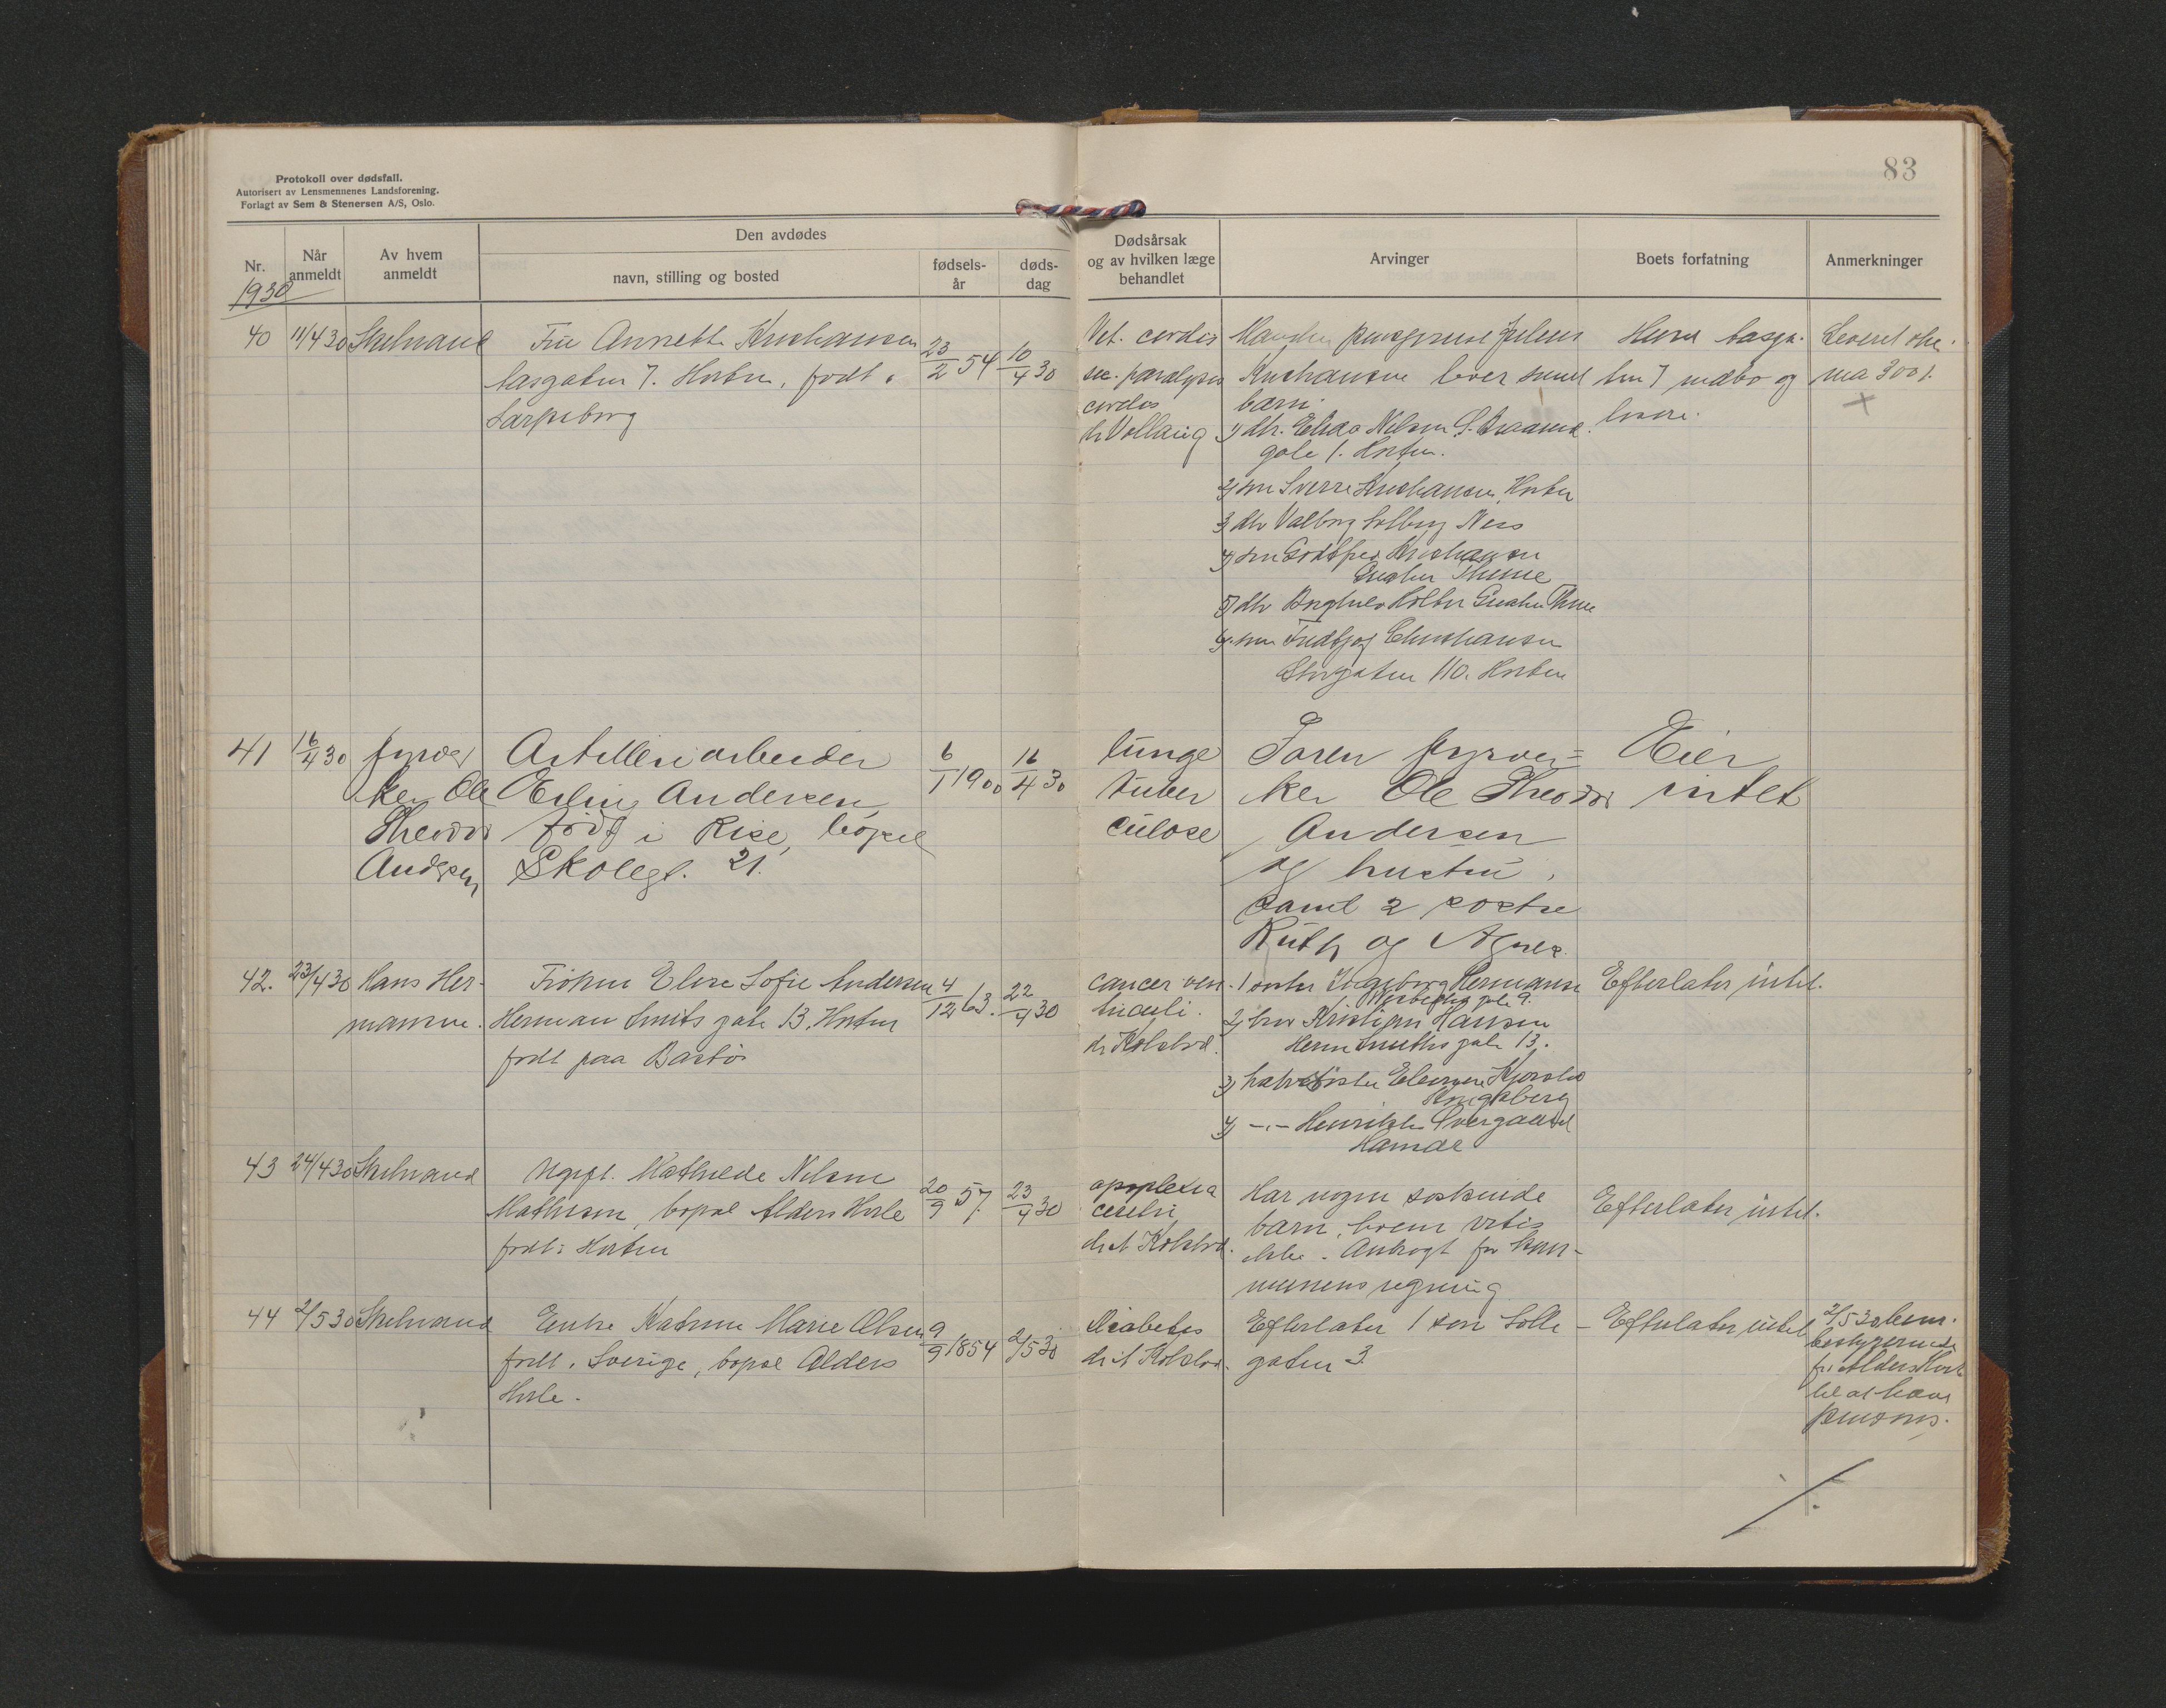 83
Protokoll over dødsfall.
Autorisert av Lensmennenes Landsforening.
Forlagt av Sem & Stenersen A/S, Oslo.
Nr.
Når anmeldt
Av hvem anmeldt
Den avdødes
navn, stilling og bosted
fødsels-
år
døds-
dag
Dødsårsak
og av hvilken læge
behandlet
Arvinger
Boets forfatning
Anmerkninger
1930
40 11/4 30 Fru Annette Kristiansen 23/2 54 10/4 30
gaten 7. Horten, født i
Sarpsborg
Vit. cordis
sec. paralysis
cordis
dr Vollaug
Manden
Kristiansen lever samt
barn.
1) dtr. Nilsen
gate 1. Horten.
2) søn Sverre Kristiansen, Horten
3 dtr Valborg Solberg Ness
4) søn Kristiansen
5) dtr Holter
6. søn Christiansen
Storgaten 110. Horten
ten 7 indbo og
løsøre.
300/.
41 16/4 30 fyrvok
ker Ole
Theodor
Andersen
Artilleriarbeider
Erling Andersen
født i Rise, bopæl
Skolegt. 21.
6/1 1900 16/4 30
lunge
tuber
culose
Faren fyrvok=
ker Ole Theodor
Andersen
og hustru,
samt 2 søstre
Ruth og Agnes.
Eier
intet
42. 23/4 30 Hans Her-
mansen.
Frøken Elise Sofie Andersen
Herman Smits gate 13, Horten
født paa Bastø
4/12 63. 22/4 30
cancer ven-
triculi.
dr Kolstad.
1 søster Ingeborg Hermansen
gate 9.
2) bror Kristian Hansen
Herm Smiths gate 13.
3) halvsøster
Kongsberg
4) -"- Henrikke Overgaard
Efterlater intet.
43 24/4 30 Ugift. Mathilde Nilsine
Mathisen, bopæl Alders Hvile
født i Horten
20/9 57. 23/4 30
apoplexia
cerebri
dr A Kolstad.
Har nogen søskende
barn, hvem vites
ikke. Anbragt for kom-
munens regning
Efterlater intet.
44 2/5 30 Enke Katrine Marie Olsen
født i Sverige, bopæl Alders
Hvile.
9/9 1854 2/5 30
Diabetes
dr A Kolstad.
Efterlater 1 søn
gaten 3.
Efterlater intet
2/5 30
bestyrerinde
fra Alders Hvile
til at hæve
pensons.